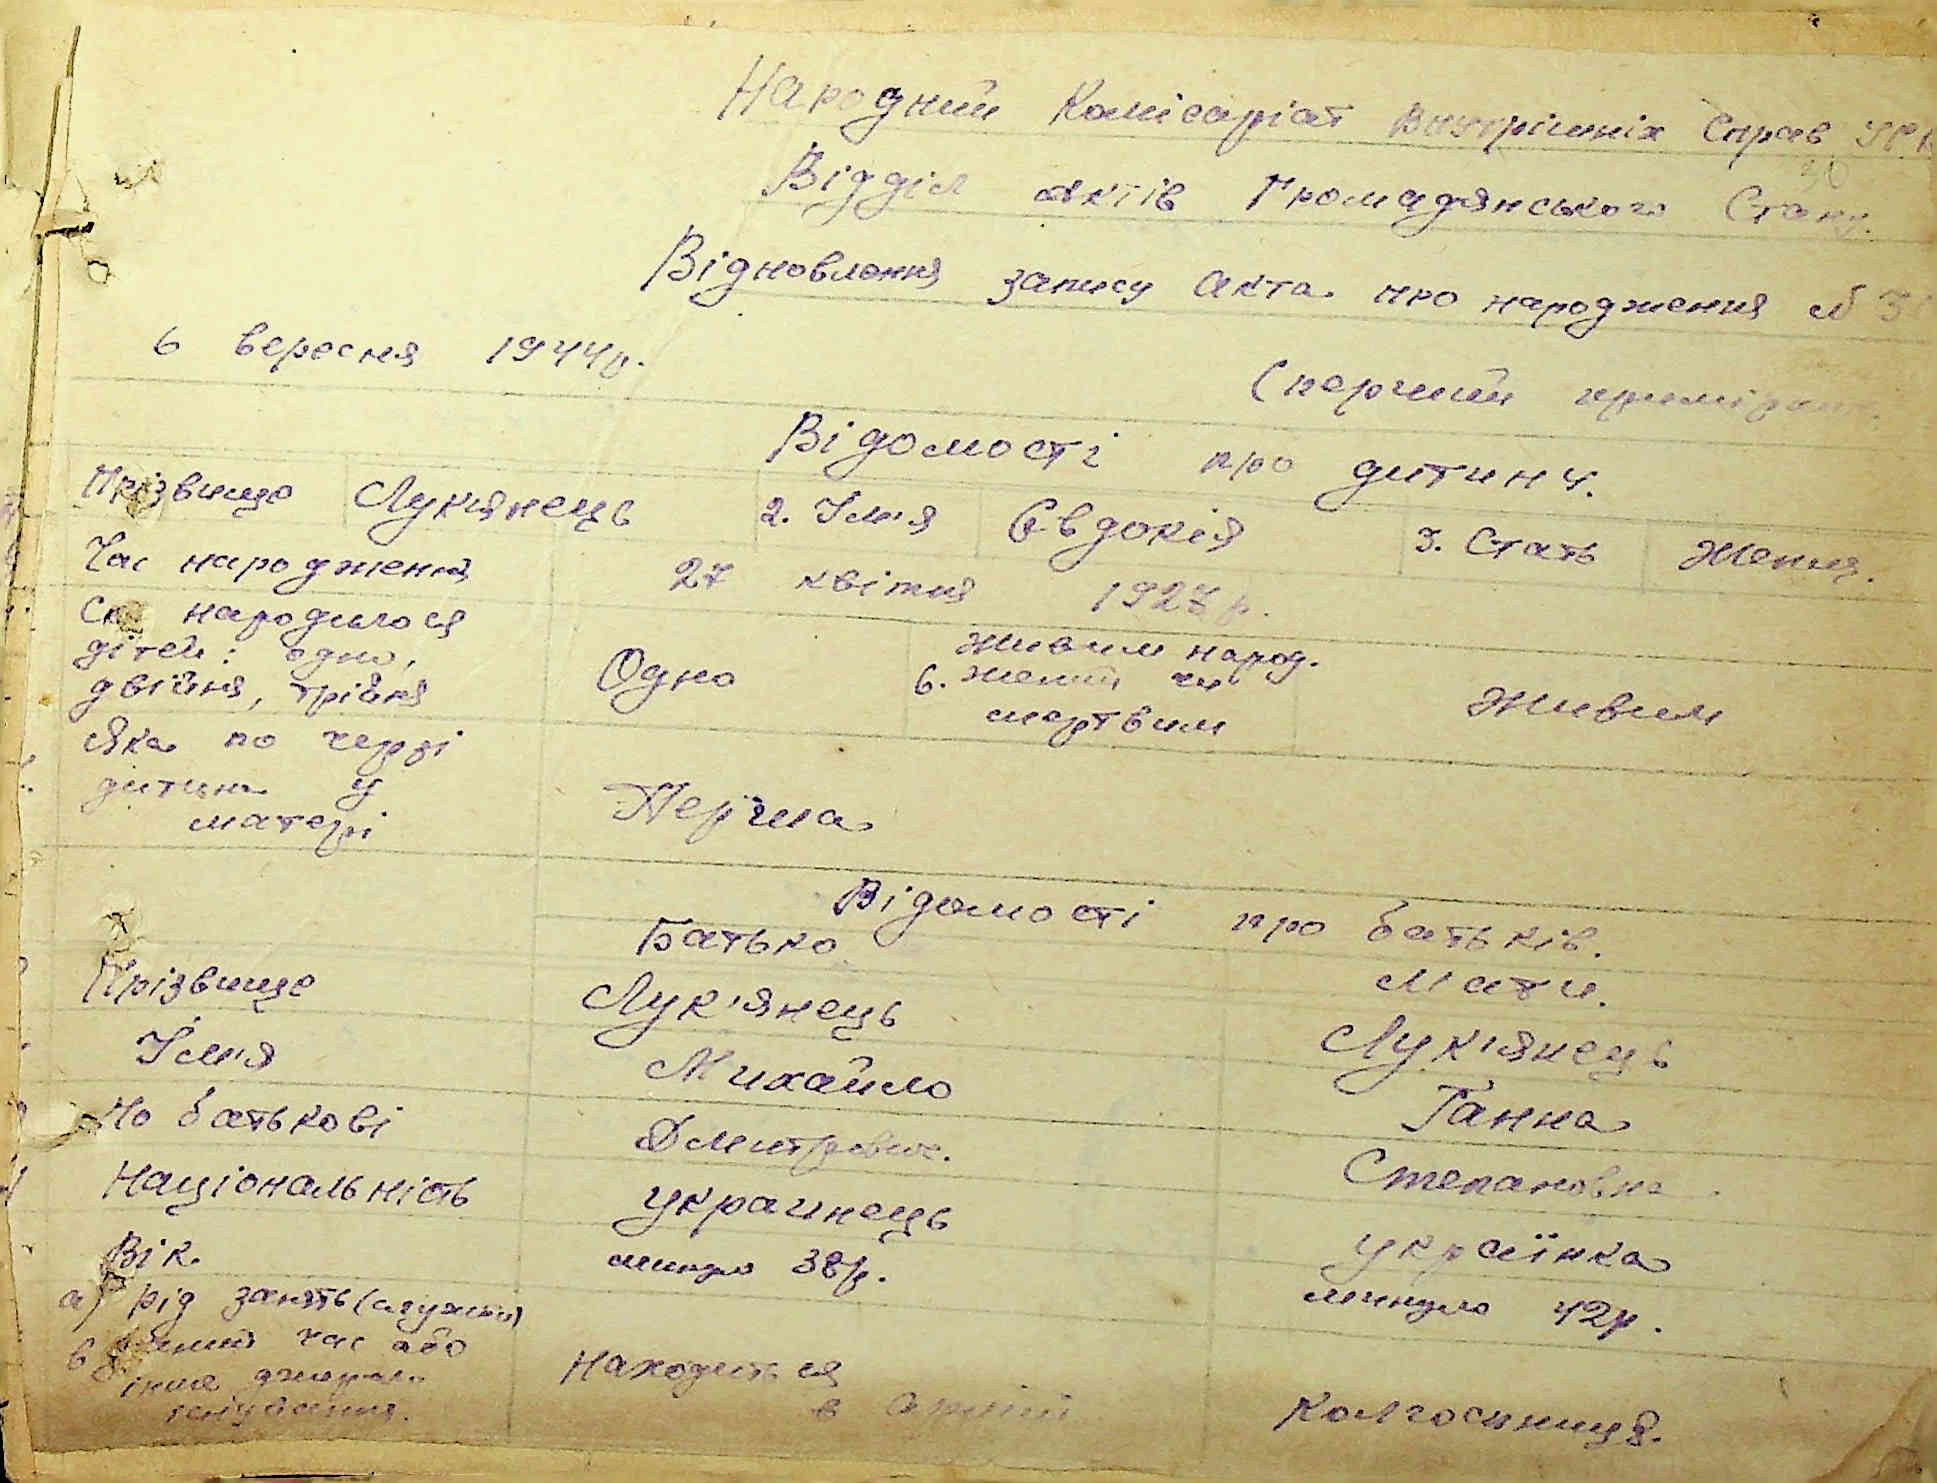 Народний Комісаріат Внутрішніх Справ
30
Відділ актів Громадянського Стану.
Відновлення запису акта про народження №
6 вересня 1944р.
(перший примірник
Відомості про дитину.
Прізвище Лук'янець 2. Ім'я Євдокія 3. Стать Жіноч.
Час народження 27 квітня р.
народилося
дітей: одно,
двійня, трійня
Одно
6. живим народ.
жений чи
мертвим
живим
Яка по черзі
дитина у
матері
Перша
Відомості про батьків.
Батько Мати.
Прізвище Лук'янець Лук'янець
Ім'я Михайло Ганна
По батькові Дмитрович. Степановна.
Національність украинець українка
Вік. минуло 38р. минуло 42р.
а) рід занять (служби)
час або
інше джерело
існування.
Находиться
в армії
Колгоспниця.